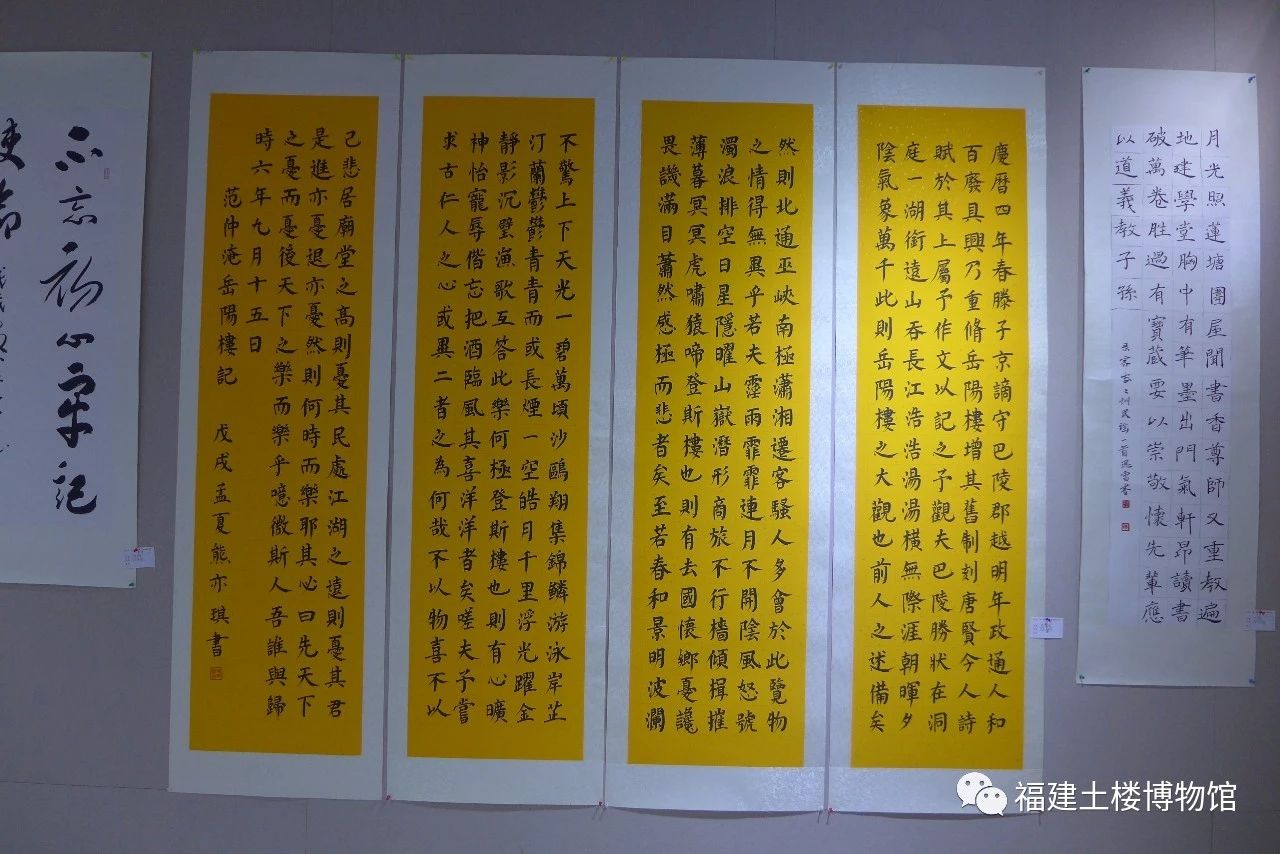 月光照蓮塘團屋聞書香尊師又重教遍
地建學堂胸中有筆墨出門氣軒昂讀書
破萬卷胜過有寶藏要以崇敬懷先輩應
以道義教子孫
慶曆四年春滕子京謫守巴陵郡越明年政通人和
百廢具興乃重脩岳陽樓增其舊制刻唐賢今人詩
賦於其上屬予作文以記之予觀夫巴陵勝狀在洞
庭一湖銜遠山吞長江浩浩湯湯橫無際涯朝暉夕
陰氣象萬千此則岳陽樓之大觀也前人之述備矣
然則北通巫峽南極瀟湘遷客騷人多會於此覽物
之情得無異乎若夫霪雨霏霏連月不開陰風怒號
濁浪排空日星隱曜山嶽潛形商旅不行檣傾楫摧
薄暮冥冥虎嘯猿啼登斯樓也則有去國懷鄉憂讒
畏譏滿目蕭然感極而悲者矣至若春和景明波瀾
不驚上下天光一碧萬頃沙鷗翔集錦鱗游泳岸芷
汀蘭鬱鬱青青而或長煙一空皓月千里浮光躍金
靜影沉璧漁歌互答此樂何極登斯樓也則有心曠
神怡寵辱偕忘把酒臨風其喜洋洋者矣嗟夫予嘗
求古仁人之心或異二者之為何哉不以物喜不以
己悲居廟堂之高則憂其民處江湖之遠則憂其君
是進亦憂退亦憂然則何時而樂耶其必曰先天下
之憂而憂後天下之樂而樂乎噫微斯人吾誰與歸
時六年九月十五日
范仲淹岳陽樓記 戊戌孟夏熊亦琪書
不忘初心牢記
使命
福建土楼博物馆